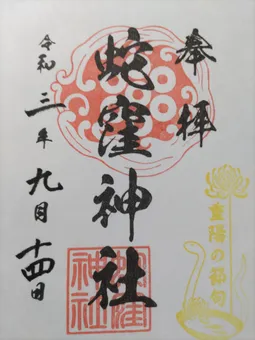 奉拝
蛇窪神社
令和三年九月十四日
蛇窪神社
重陽の節句